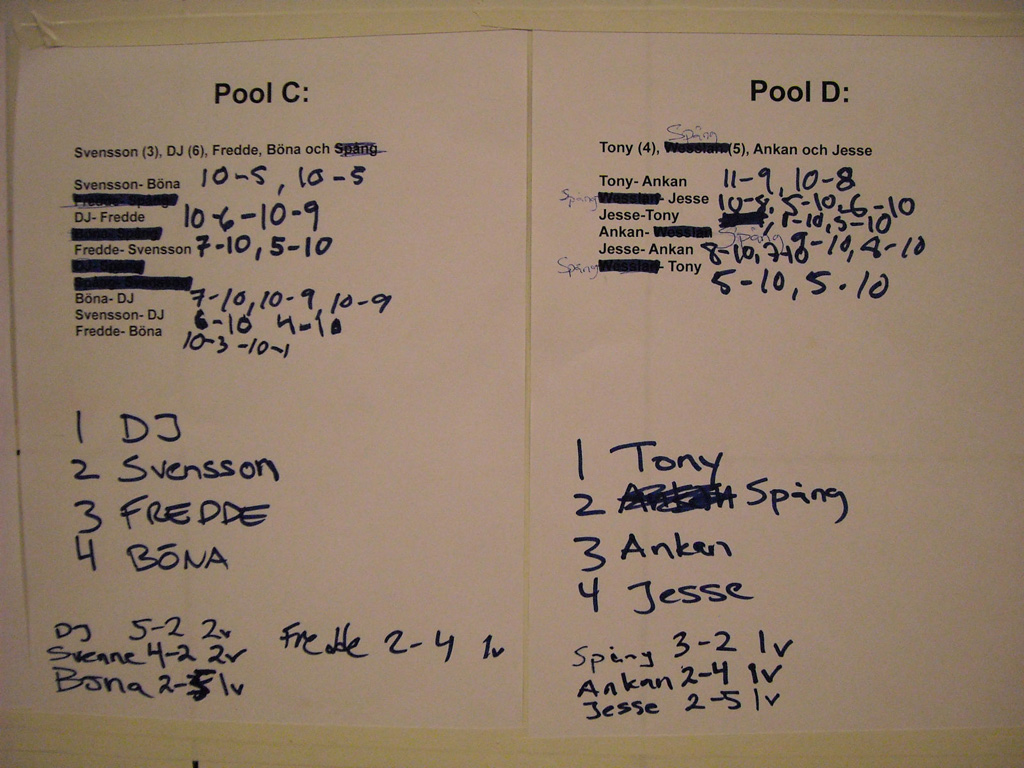 Pool C:
Svensson (3), DJ (6), Fredde, Böna och Spång
Svensson- Böna 10-5, 10-5
Fredde- Spång
DJ- Fredde 10-6-10-9
Fredde- Svensson 7-10, 5-10
DJ- Spång
Böna- DJ 7-10, 10-9, 10-9
Svensson- DJ 6-10 4-10
Fredde- Böna 10-3-10-1
1 DJ
2 Svensson
3 FREDDE
4 BÖNA
DJ 5-2 2v
Svenne 4-2 2v
Fredde 2-4 1v
Böna 2-5 1v
Pool D:
Spång
Tony (4), Wesslan (5), Ankan och Jesse
Tony- Ankan 11-9, 10-8
Spång - Jesse 10-8, 5-10, 6-10
Jesse-Tony 5-10
Ankan- Spång 9-10, 8-10
Jesse- Ankan 8-10, 7-10
Spång - Tony 5-10, 5-10
1 Tony
2 Spång
3 Ankan
4 Jesse
Spång 3-2 1v
Ankan 2-4 1v
Jesse 2-5 1v